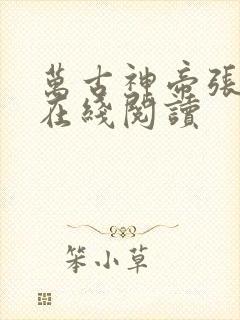 萬古神帝張
在綫閱讀
笨小草